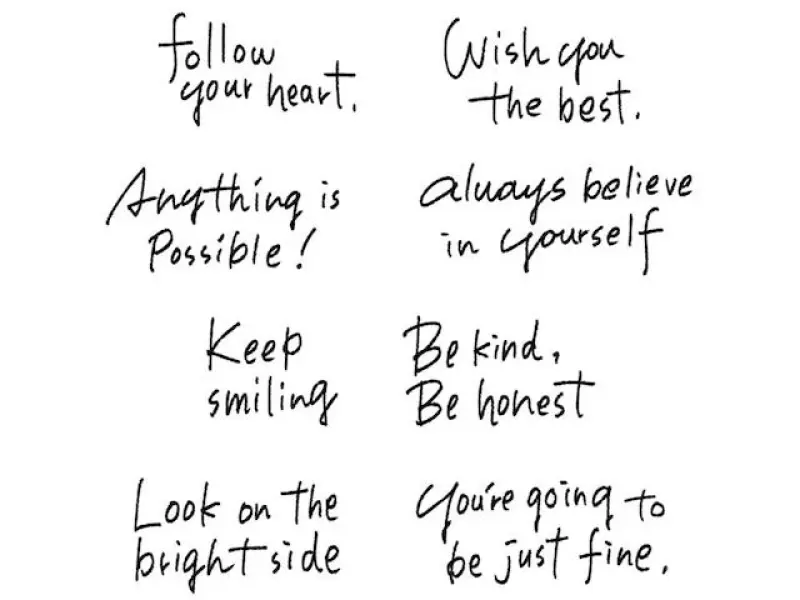 follow
your heart.
Wish you
the best.
Anything is
Possible!
always believe
in yourself
Keep
smiling
Be kind,
Be honest
Look on the
bright side
You're going to
be just fine.